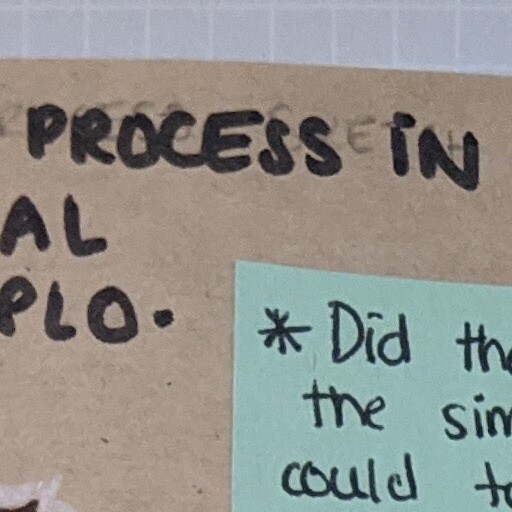 PROCESS IN
AL
PLO.
* Did the
the sim
could to